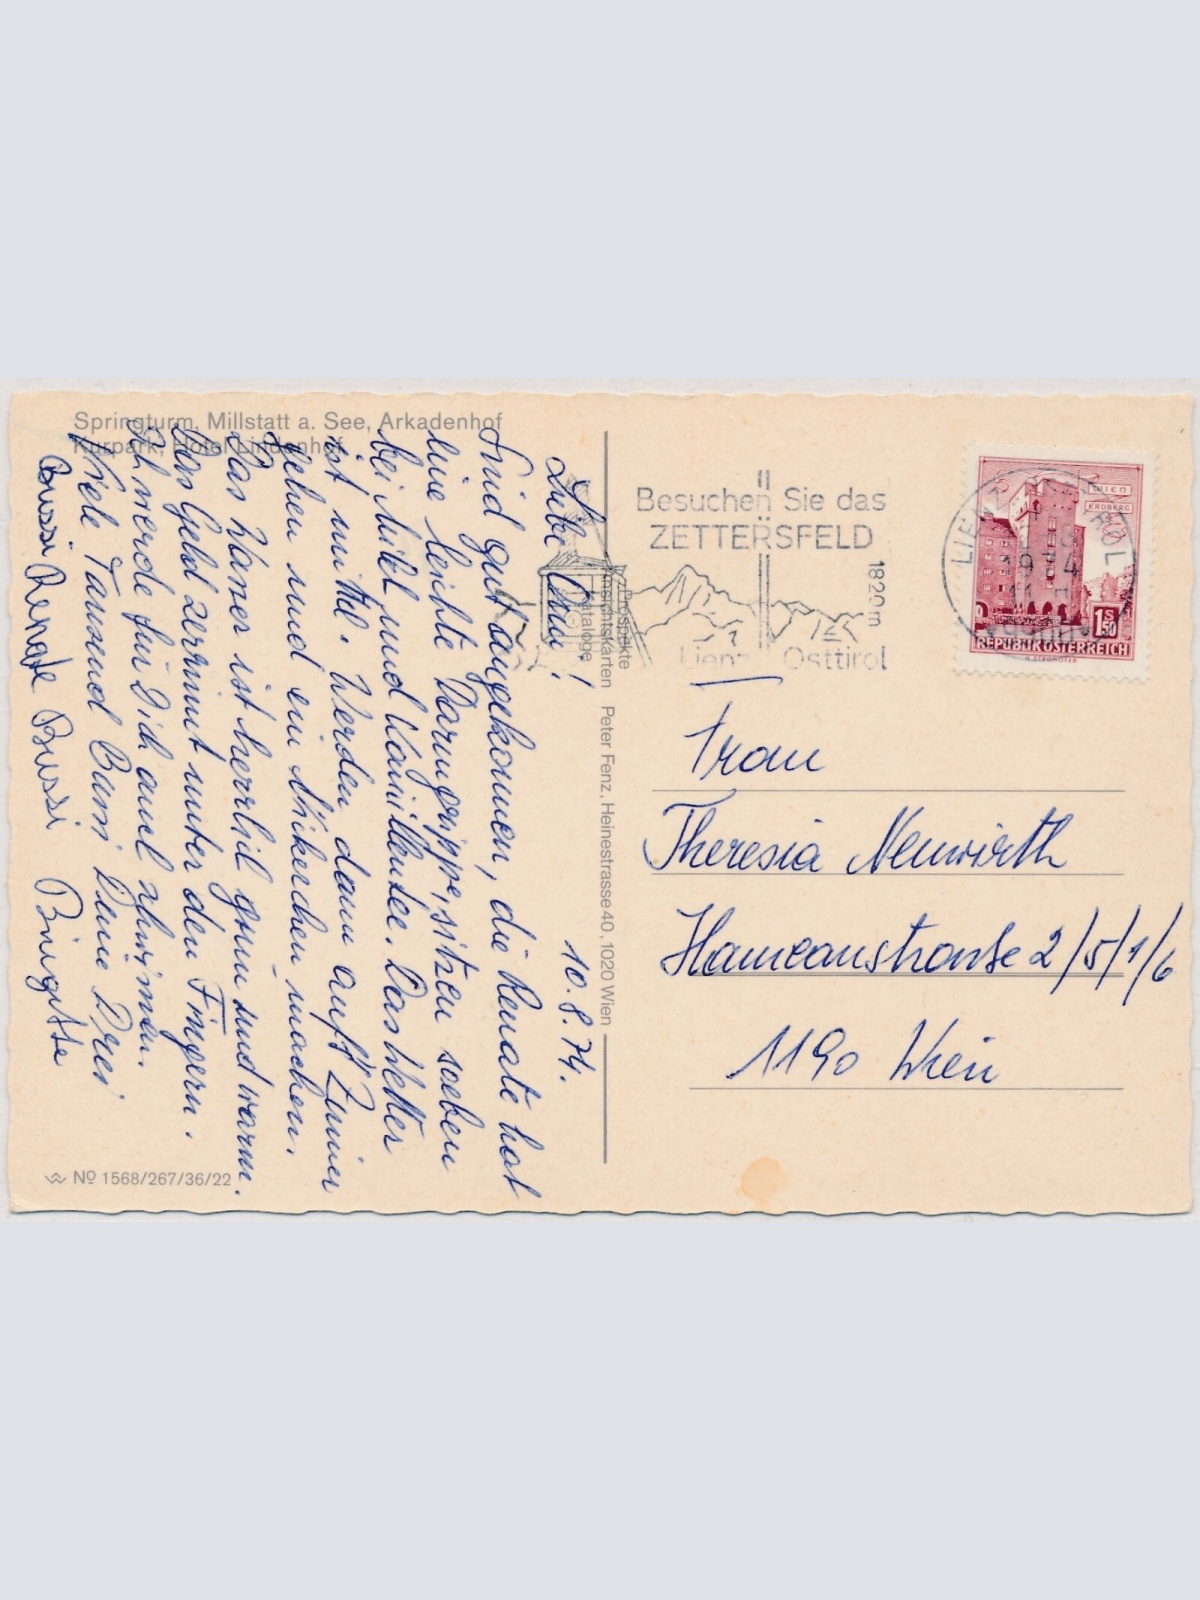 Springturm, Millstatt a. See, Arkadenhof
Kurpark, Hotel Lindenhof
10.8.74.
Liebe Omi!
Sind gut angekommen, die Renate hat
eine leichte Darmgrippe, sitzen soeben
bei Mikl und Kamillentee. Das Wetter
ist mittel. Werden dann auf's Zimmer
gehen und ein Nikerchen machen.
Das Wasser ist herrlich grün und warm.
Das Geld zerrinnt unter den Fingern.
Ich werde für Dich auch schwimmen.
Viele Tausend Bussi Deine Drei
Bussi Renate Bussi Brigitte
Nº 1568/267/36/22
Prospekte
Ansichtskarten Peter Fenz, Heinestrasse 40, 1020 Wien
Kataloge
Besuchen Sie das
ZETTERSFELD
1820m
Lienz Osttirol
LIENZ
1974
WIEN
ERDBERG
1 S 50
REPUBLIK ÖSTERREICH
Frau
Theresia Neuwirth
Hameaustrasse 2/5/1/6
1190 Wien